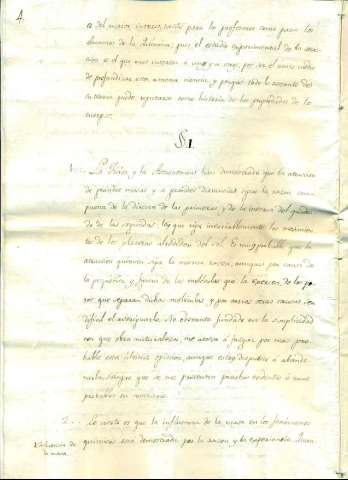 4.
es del mayor interes, tanto para los profesores como para los
alumnos de la Química; pues el estudio experimental de la atrac-
cion es el que mas interesa a unos y a otros, por ser el único modo
de profundizar esta amena ciencia, y porque todo lo restante de
su teoria puede reputarse como historia de las propiedades de los
cuerpos.
§ 1.
1... La Física, y la Astronomía han demostrado que la atraccion
de grandes masas y a grandes distancias sigue la razon com-
puesta de la directa de las primeras, y de la inversa del quadra-
do de las segundas: ley que rige invariablemente los movimien-
tos de los planetas alrededor del sol. Es muy probable que la
atraccion química siga la misma razon, aunque por causa de
la pequeñez, y figura de las moléculas, y de los po-
ros que separan dichas moléculas, y por varias otras causas, sea
dificil el averiguarla. No obstante fundado en la simplicidad
con que obra naturaleza, me atrevo a juzgar por mas pro-
bable esta última opinion, aunque estoy dispuesto a abando-
narla siempre que se me presenten pruebas evidentes o mas
probables en contrario.
2... Lo cierto es que la influencia de la masa en los fenómenos
químicos está demostrada por la razon y la experiencia.
Influencia de
la masa.